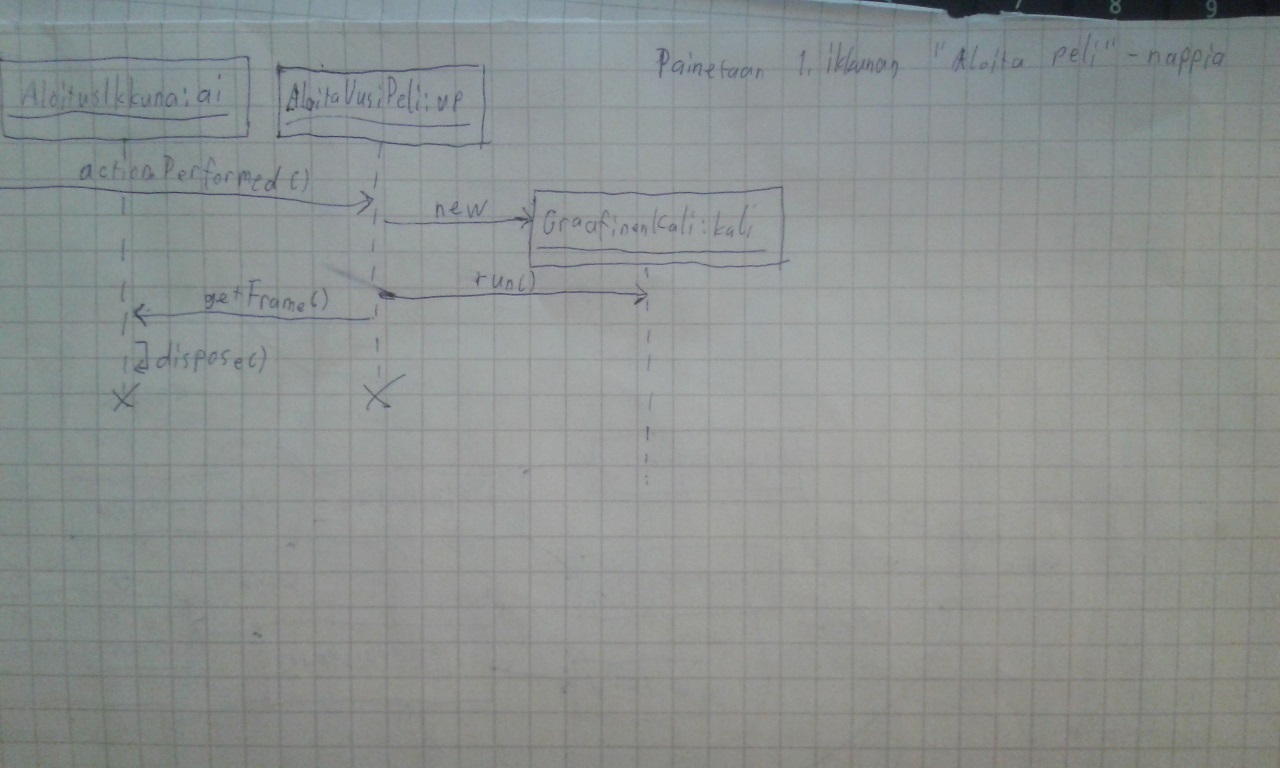 Painetaan 1. ikkunan "Aloita peli" -nappia
AloitusIkkuna:ai
AloitaUusiPeli:up
actionPerformed()
new
GraafinenKali:kali
run()
getFrame()
dispose()
7 8 9